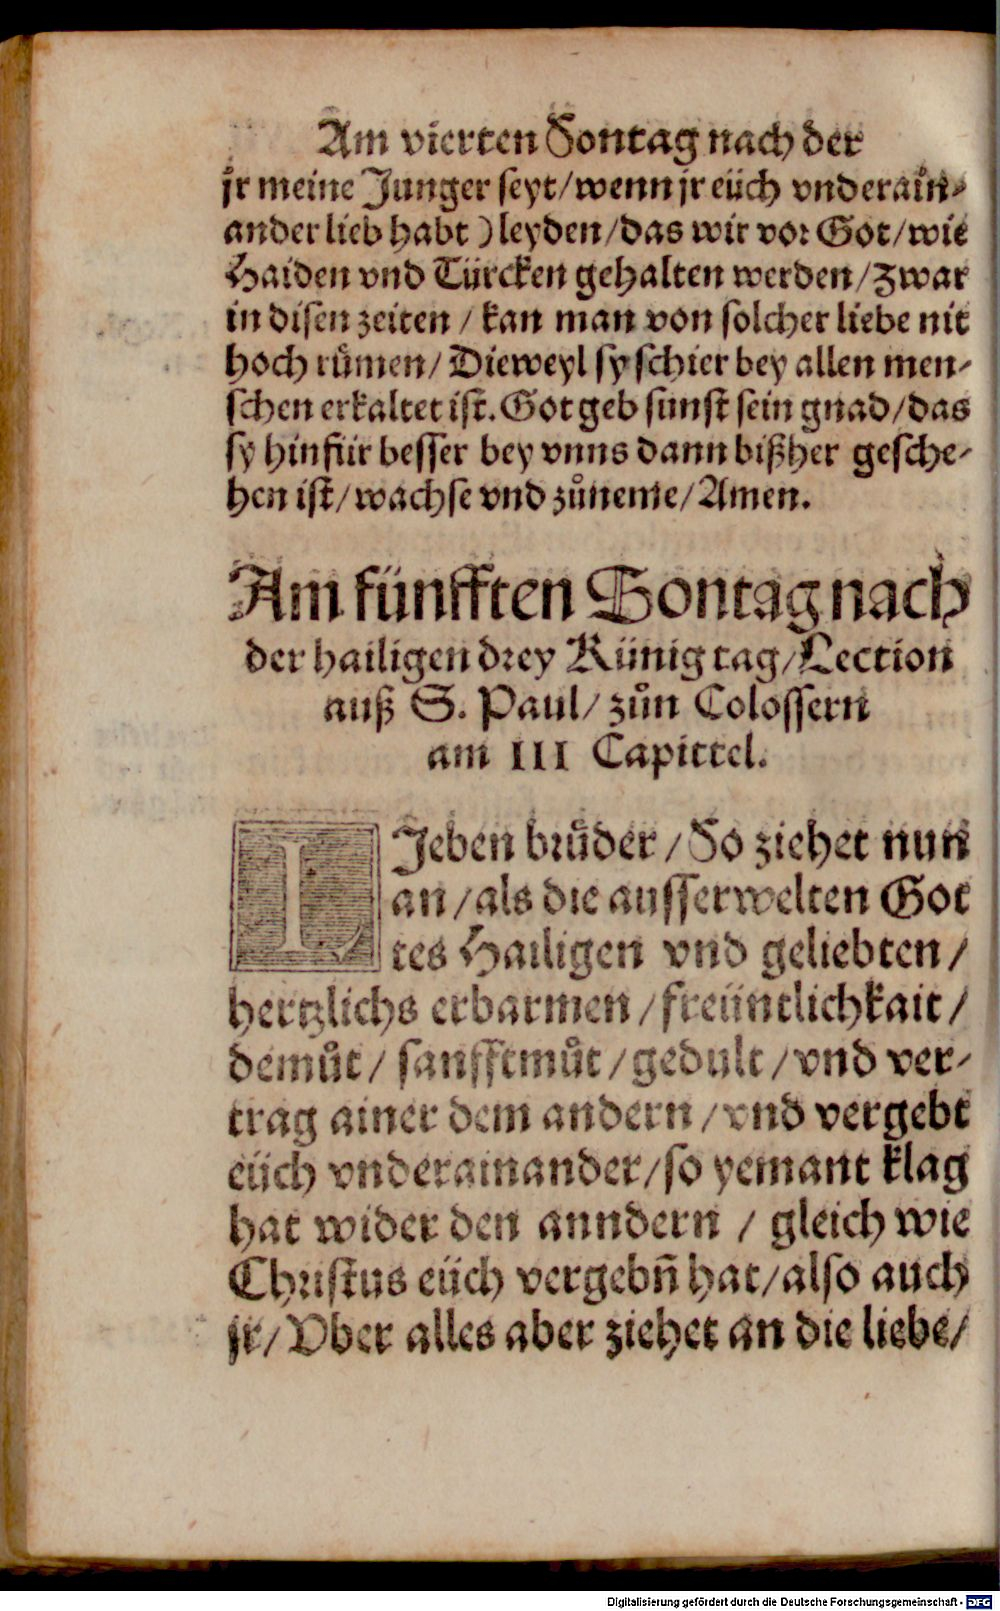 Am vierten Sontag nach der
jr meine Junger seyt/wenn jr eüch vnderain-
ander lieb habt) leyden/das wir vor Got/wie
Haiden vnd Türcken gehalten werden/zwar
in disen zeiten/kan man von solcher liebe nit
hoch rümen/Dieweyl sy schier bey allen men-
schen erkaltet ist. Got geb sunst sein gnad/das
sy hinfür besser bey vnns dann bißher gesche-
hen ist/wachse vnd zůneme/Amen.
Am fünfften Sontag nach
der hailigen drey Künig tag/Lection
auß S. Paul/zůn Colossern
am III Capittel.
LIeben brüder/So ziehet nun
an/als die ausserwelten Got
tes Hailigen vnd geliebten/
hertzlichs erbarmen/freüntlichkait/
demůt/sanfftmůt/gedult/vnd ver-
trag ainer dem andern/vnd vergebt
eüch vnderainander/so yemant klag
hat wider den anndern/gleich wie
Christus eüch vergebñ hat/also auch
jr/Vber alles aber ziehet an die liebe/
Digitalisierung gefördert durch die Deutsche Forschungsgemeinschaft - DFG